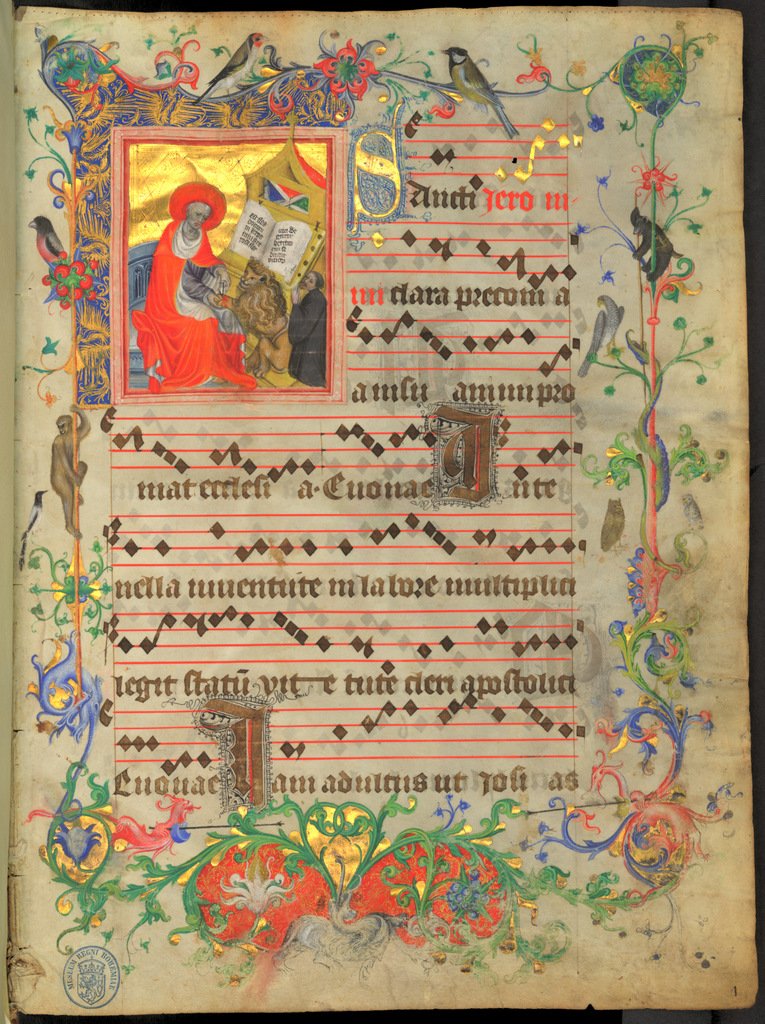 Sancti Jeroni
mi clara preconia
a insu amini pro
mat ecclesia. Euouae In te
nella iuventute in labore multiplici
legit statū vite tute cleri apostolici
Euouae Iam adultus ut Josias
MUSEUM REGNI BOHEMIAE
1